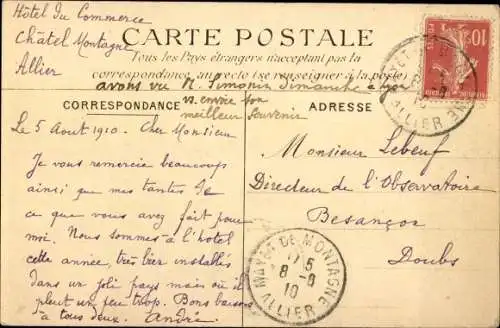 Hôtel du Commerce
Châtel Montagne
Allier
CARTE POSTALE
Tous les Pays étrangers n'acceptant pas la
correspondance au recto (se renseigner à la poste)
avons vu M. Simonin dimanche à Lyon
vs envoie son
meilleur souvenir
CORRESPONDANCE
ADRESSE
Le 5 Aout 1910. Cher Monsieur
Je vous remercie beaucoup
ainsi que mes tantes de
ce que vous avez fait pour
moi. Nous sommes à l'hotel
cette année, très bien installés
dans un joli pays mais où il
pleut un peu trop. Bons baisers
à tous deux. André
Monsieur Lebeuf
Directeur de l'Observatoire
Besançon
Doubs
MAYET DE MONTAGNE
17 15
8 - 8
10
ALLIER
10
POSTES
ALLIER